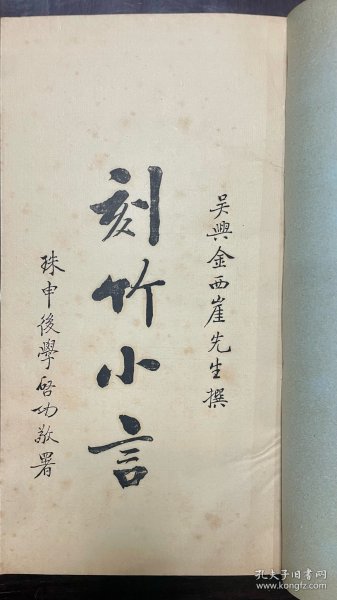 吴興金西厓先生撰
刻竹小言
珠申後學啓功敬署
孔夫子旧书网
www.kongfz.com